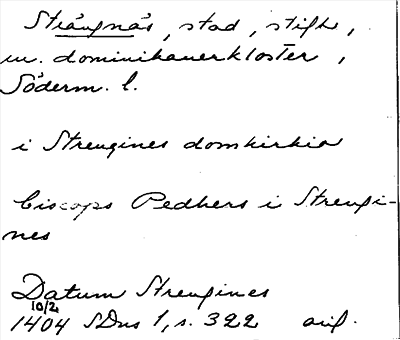 Strängnäs, stad, stift,
m. dominikanerkloster,
Söderm. l.
i Strengines domkirkio
Biscops Pedhers i Strengi-
nes
Datum Strengines
10/2
1404 SDns 1, s. 322 orig.